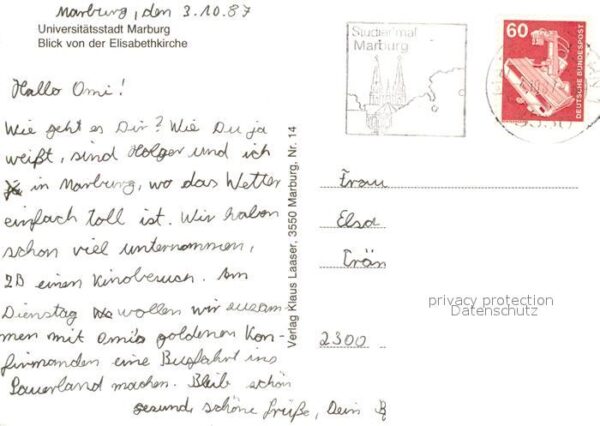 Marburg, den 3.10.87
Universitätsstadt Marburg
Blick von der Elisabethkirche
Hallo Omi!
Wie geht es Dir? Wie Du ja
weißt, sind Holger und ich
in Marburg, wo das Wetter
einfach toll ist. Wir haben
schon viel unternommen,
ZB einen Kinobesuch. Am
Dienstag wollen wir zusam
men mit Omis goldenen Kon-
firmanden eine Busfahrt ins
Sauerland machen. Bleib schön
gesund, schöne Grüße, Dein
Verlag Klaus Laaser, 3550 Marburg, Nr. 14
Studier'mal
Marburg
60
DEUTSCHE BUNDESPOST
Frau
Elsa
2300
privacy protection
Datenschutz